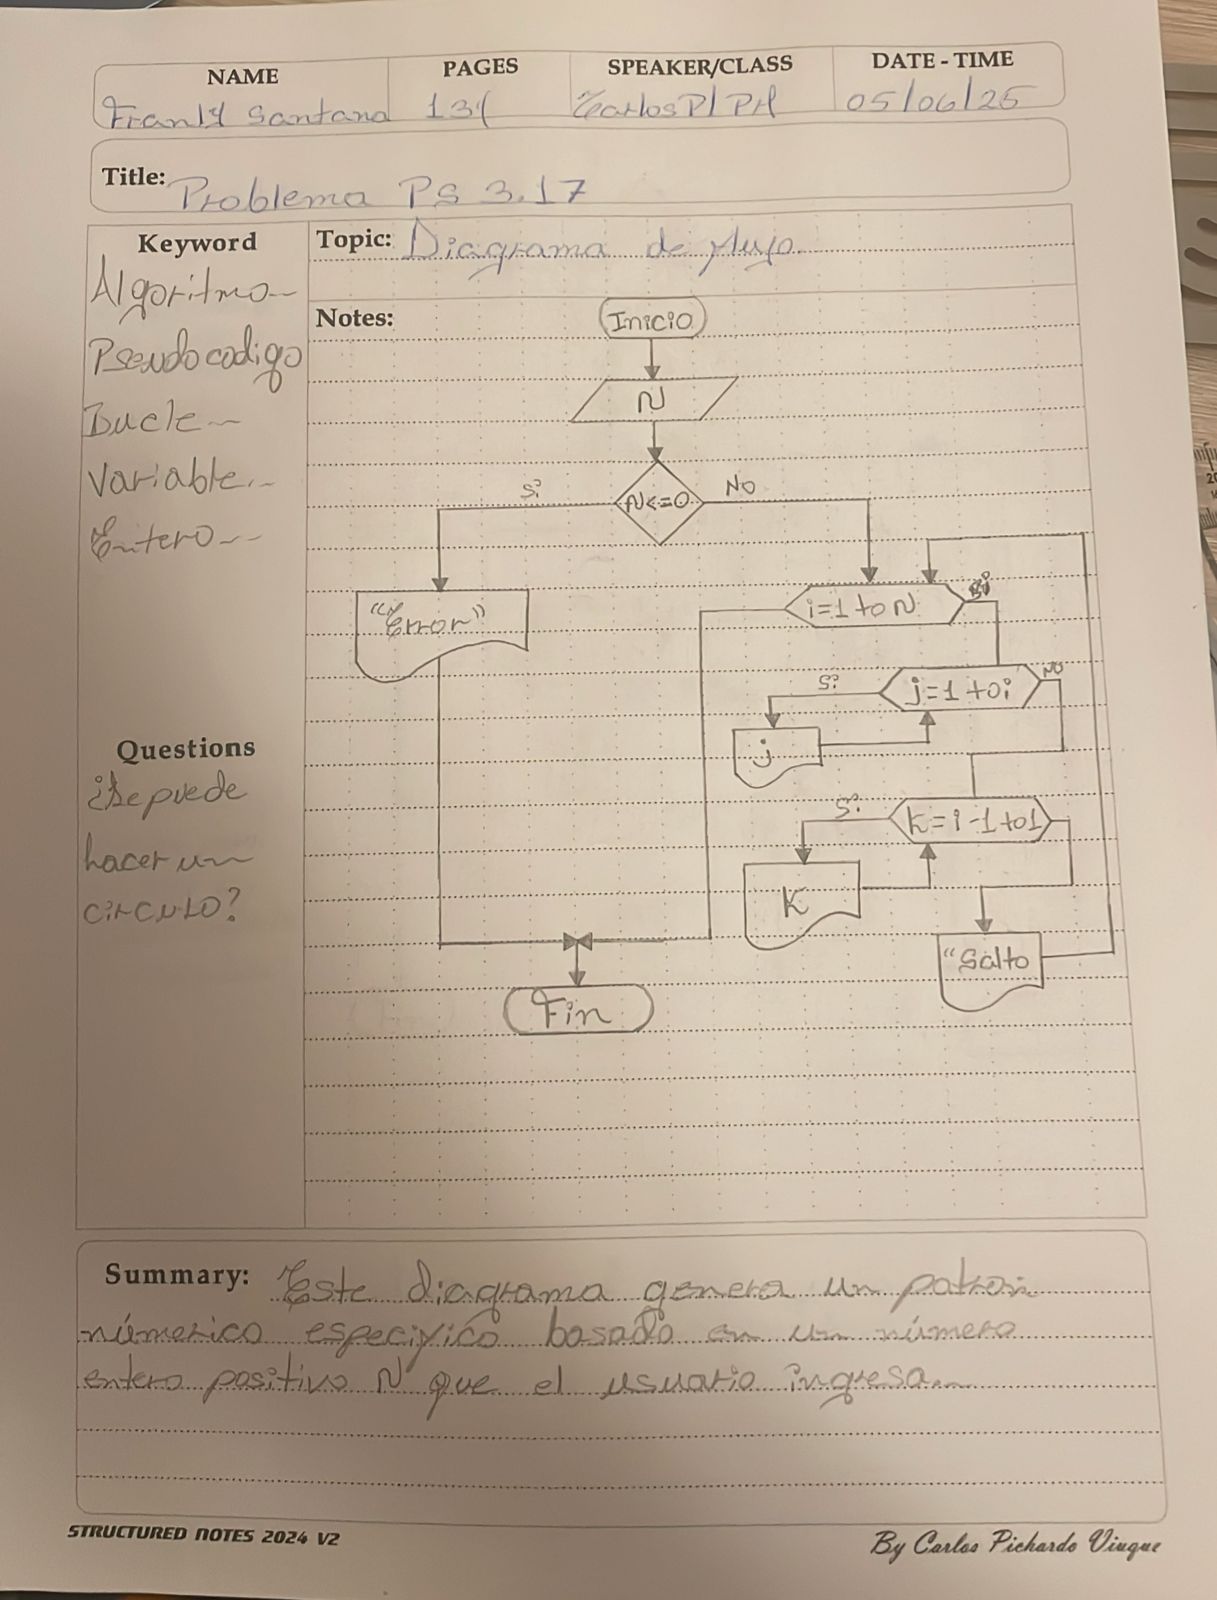 NAME PAGES SPEAKER/CLASS DATE - TIME
Franly Santana 131 Carlos P/ PH 05/06/25
Title: Problema PS 3.17
Keyword
Algoritmo
Pseudocodigo
Bucle
Variable
Entero
Questions
¿Se puede
hacer un
circulo?
Topic: Diagrama de flujo
Notes:
Inicio
N
N<=0
Si
No
"Error"
i=1 to N
Si
j=1 to i
Si
No
j
K=i-1 to 1
Si
K
"Salto
Fin
Summary: Este diagrama genera un patron
númerico especifico basado en un número
entero positivo N que el usuario ingresa
STRUCTURED NOTES 2024 V2
By Carlos Pichardo Viuque